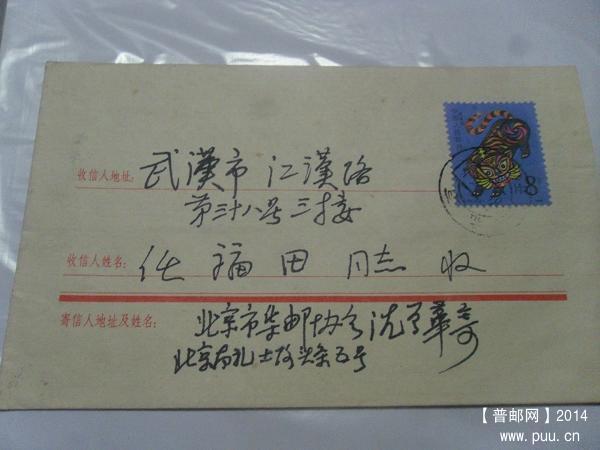 8
收信人地址:武漢市 江漢路
第三十八号 三接
收信人姓名:任 福 田 同志 收
寄信人地址及姓名:北京市集邮协会 沈 華 寄
北京 礼士路 头条 五号
【普邮网】2014
www.puu.cn